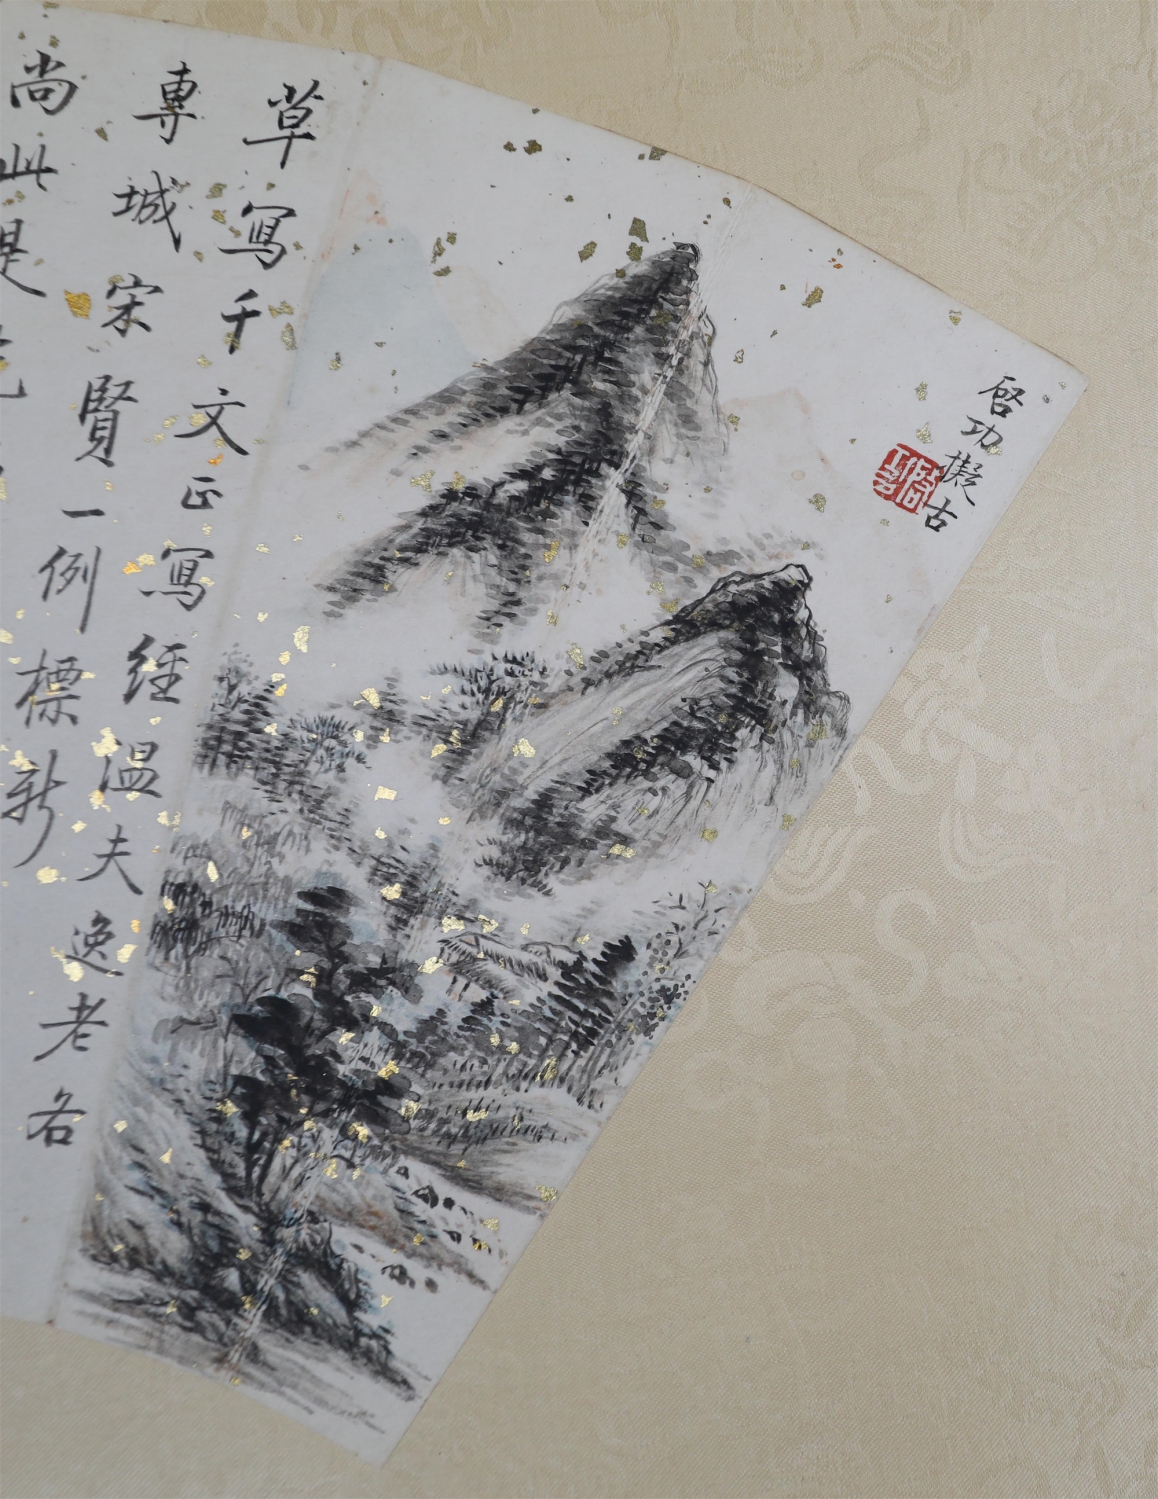 啓功擬古
草寫千文正寫經溫夫逸老各
專城宋賢一例標新
尚此是